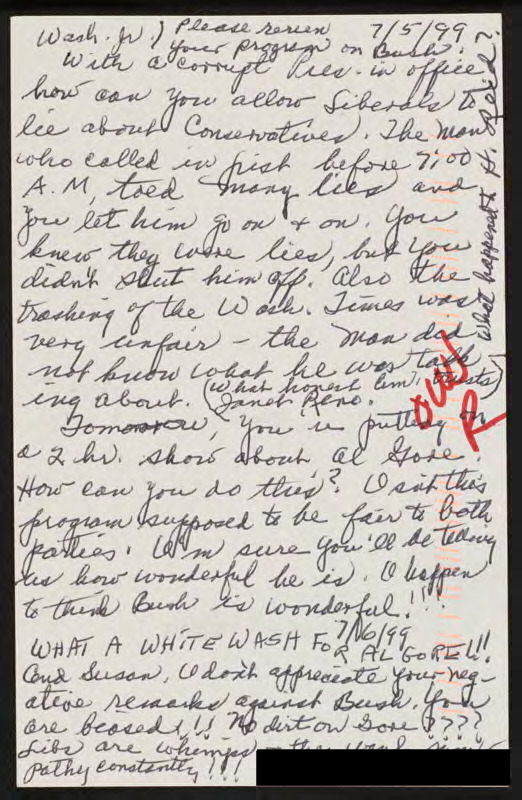 Wash. Jr.) Please review 7/5/99
your program on Bush!
With a corrupt Pres. in office
how can you allow Liberals to
lie about Conservatives. The man
who called in first before 7:00
A.M, toed many lies and
you let him go on + on. You
knew they were lies, but you
didn't shut him off. Also the
trashing of the Wash. Times was
very unfair – the man did
not know what he was talk
ing about. (What honest trusts
Janet Reno.)
Tomorrow, you're putting on
a 2 hr. show about Al Gore.
How can you do this? Isn't this
program supposed to be fair to both
parties. I'm sure you'll be telling
us how wonderful he is. I happen
to think Bush is wonderful!!!
7/16/99
WHAT A WHITE WASH FOR AL GORE!!!
And Susan, I don't appreciate your neg-
ative remarks against Bush. You
are beased!!! No dirt on Gore????
Libs are whimps – they want sym
pathy constantly!!!
What happened to H. Reid?
R